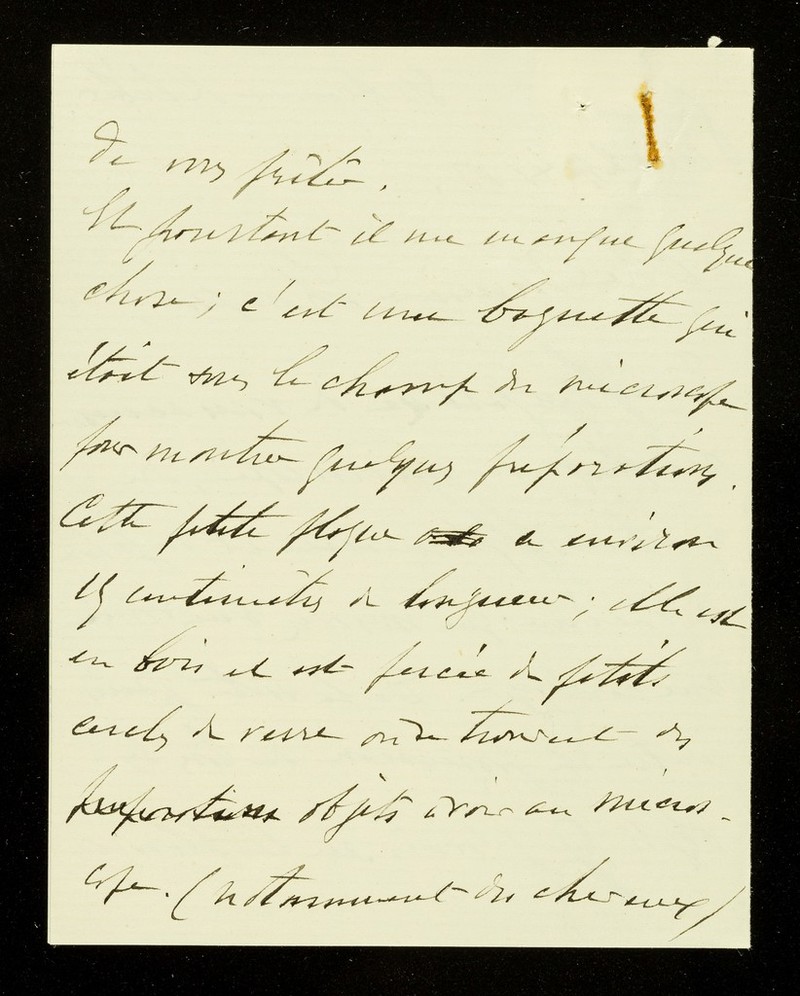 de vos
Et pourtant il me manque quelque
chose ; c'est une baguette qui
était sous le champ du microscope
pour montrer quelques préparations.
Cette petite plaque a environ
centimètres de longueur ; elle est
en bois et est percée de petits
cercles de verre où se trouvent des
préparations objets à voir au micros-
cope. (notamment des cheveux)